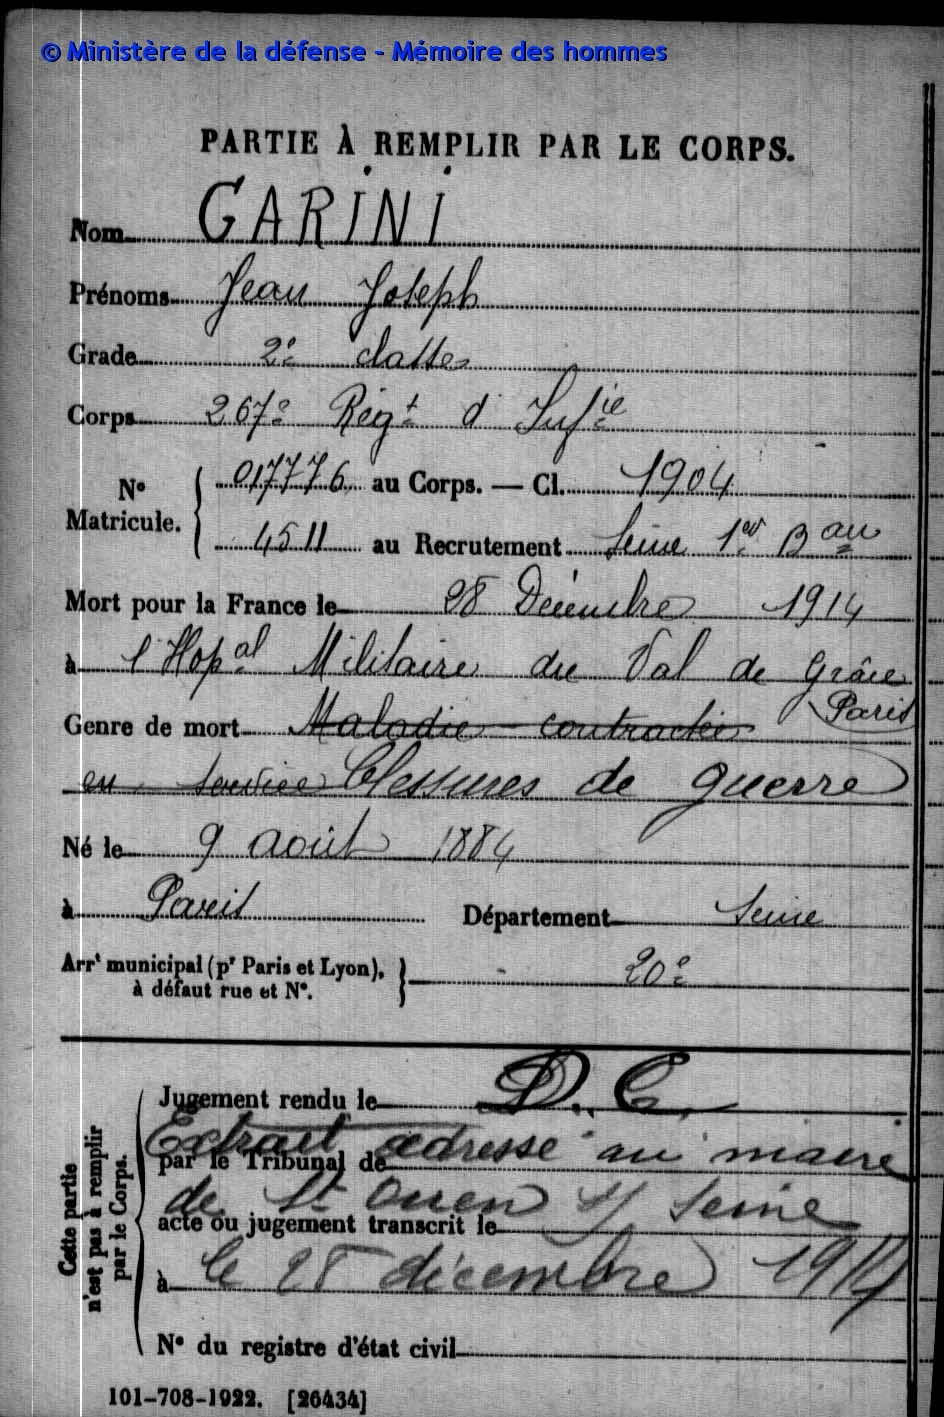 © Ministère de la défense - Mémoire des hommes
PARTIE À REMPLIR PAR LE CORPS.
Nom GARINI
Prénoms Jean Joseph
Grade 2e classe
Corps 267e Régt d'Infie
No Matricule. 017776 au Corps. — Cl. 1904
4511 au Recrutement Seine 1er Bau
Mort pour la France le 28 Décembre 1914
à l'Hopal Militaire du Val de Grâce
Paris
Genre de mort Maladie contractée
en service blessures de guerre
Né le 9 août 1884
à Paris Département Seine
Arrt municipal (pr Paris et Lyon), 20e
à défaut rue et No.
Cette partie
n'est pas à remplir
par le Corps.
Jugement rendu le D. C.
Extrait adressé au maire
par le Tribunal de
de St Ouen s/ Seine
acte ou jugement transcrit le
à le 28 décembre 1914
No du registre d'état civil
101-708-1922. [26434]